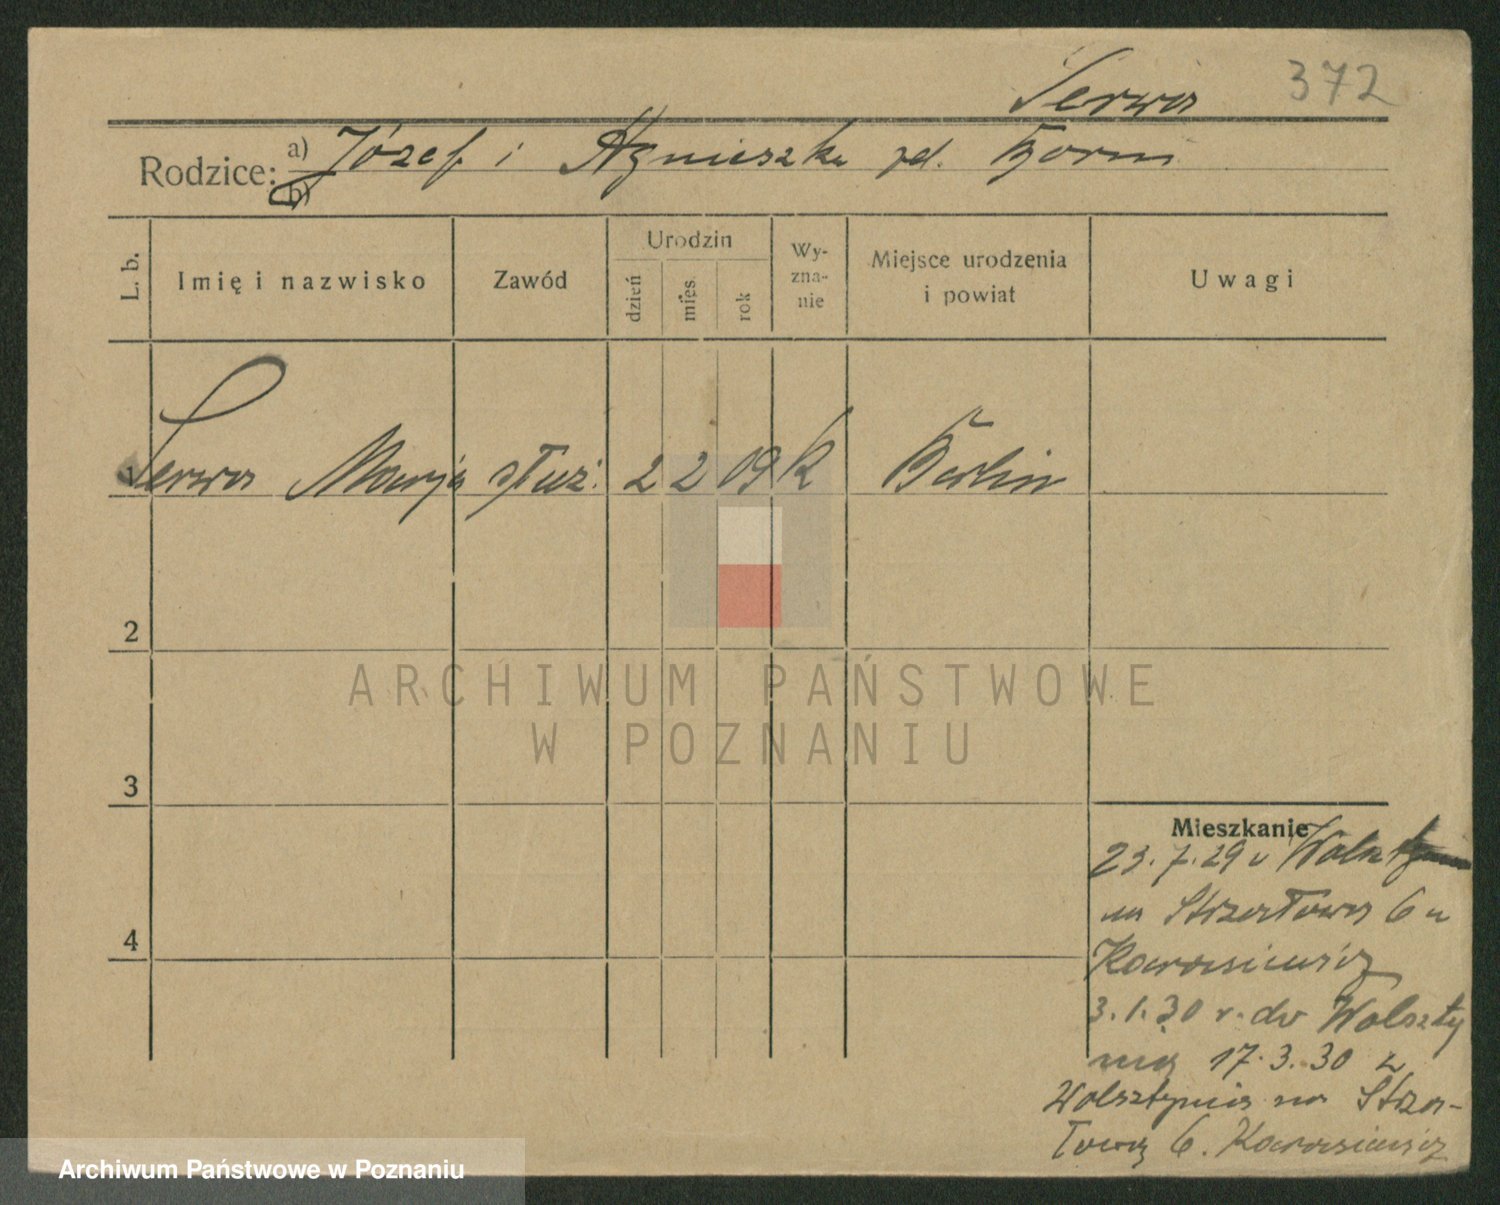 Serwa 372
Rodzice: a) Józef i Agnieszka zd.
b)
L. b. Imię i nazwisko Zawód Urodzin dzień mies. rok Wy-zna-nie Miejsce urodzenia i powiat Uwagi
1 Serwa Marja służ. 2 2 09 k Berlin
2
3
4
Mieszkanie
23.7.29 Wolsztyna
na Strzałową 6 u
Karasiewicz
3.1.30 r. do Wolszty
nia 17.3.30 z
Wolsztynia na Strza-
łową 6. Karasiewicz
ARCHIWUM PAŃSTWOWE
W POZNANIU
Archiwum Państwowe w Poznaniu